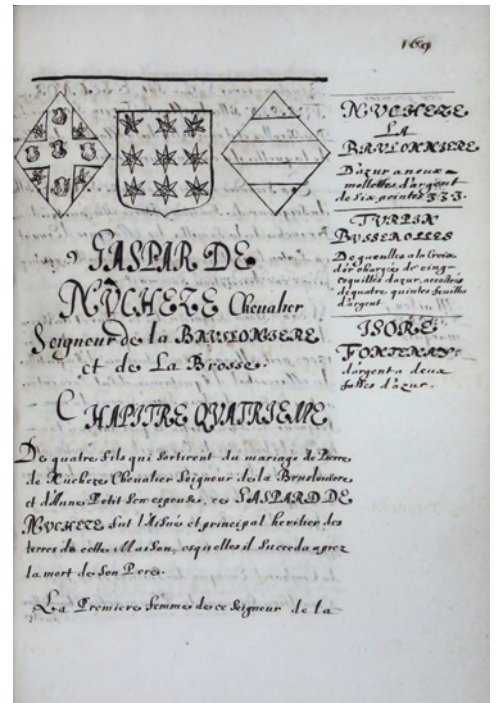 169
NVCHEZE
LA
BRVLONNIERE
D'azur a neuf
mollettes d'argent
de six pointes 3.3.3.
TVRPIN
BVSSEROLLES
De gueulles a la Croix
d'or chargée de cinq
coquilles d'azur, accostée
de quatre quintes feuilles
d'argent
ISORÉ
FONTENAY:
d'argent a deux
fasses d'azur.
GASPAR DE
NVCHEZE Chevalier
Seigneur de la BRVSLONIERE
et de La Brosse.
CHAPITRE QVATRIEME
De quatre fils qui sortirent du mariage de Pierre
de Nucheze Chevalier Seigneur de la Brusloniere
et d'Anne Petit son espouse, ce GASPARD DE
NVCHEZE fut l'Aisné et principal heritier des
terres de cette Maison, esquelles il succeda aprez
la mort de son Pere.
La Premiere femme de ce Seigneur de la